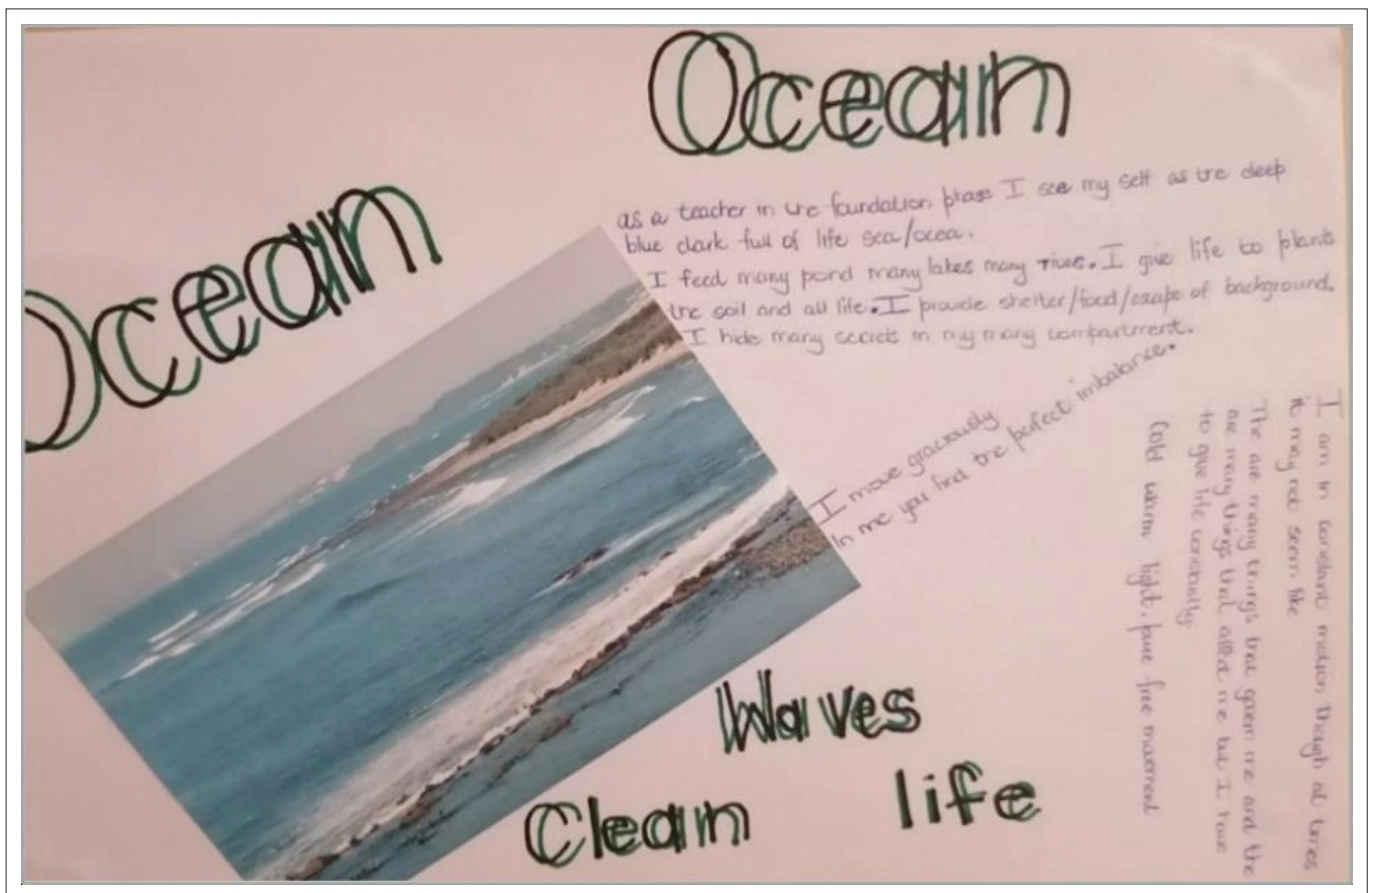 Ocean
Ocean
as a teacher in the foundation phase I see my self as the deep
blue dark full of life sea/ocea.
I feed many pond many lakes many rives. I give life to plants
the soil and all life. I provide shelter/food/escape of background.
I hide many secrets in my many compartment.
I move graciously
In me you find the perfect imbalance.
I am in constant motion though at times
it may not seem like
The are many things that govern me and the
are many things that affect me but I have
to give life constantly
Cold warm light. pure free movement
Waves
life
Clean